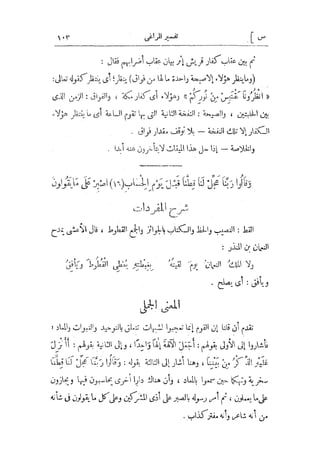 ص ] تفسير المراغى ١٠٣
ثم بين عقاب كفار قريش إثر بيان عقاب أضرابهم فقال :
(وما ينظر هؤلاء إلا صيحة واحدة ما لها من فواق) ينظر: أى ينتظر كقوله تعالى:
« انْظُرُونا نَقْتَبِسْ مِنْ نُورِكُمْ » وهؤلاء أى كفار مكة ، والفواق : الزمن الذى
بين الحلبتين ، والصيحة : النفخة الثانية التى بها تقوم الساعة أى ما ينتظر هؤلاء
الكفار إلا تلك النفخة — بلا توقف مقدار فواق .
والخلاصة — إذا حل هذا الميقات لا يتأخرون عنه أبدا .
وَقالُوا رَبَّنا عَجِّلْ لَنا قِطَّنا قَبْلَ يَوْمِ الْحِسابِ (١٦) اصْبِرْ عَلى ما يَقُولُونَ
شرح المفردات
القط : النصيب والحظ والكتاب بالجوائز والجمع القطوط ، قال الأعشى يمدح
النعمان بن المنذر :
ولا الملك النعمان يوم لقيته بغبطته يعطى القطوط ويأفق
ويأفق : أى يصلح .
المعنى الجملى
تقدم أن قلنا إن القوم إنما تعجبوا لشبهات تتعلق بالتوحيد والنبوات والمعاد ؛
فأشاروا إلى الأولى بقولهم : أَجَعَلَ الْآلِهَةَ إِلهاً واحِداً ، وإلى الثانية بقولهم : أَأُنْزِلَ
عَلَيْهِ الذِّكْرُ مِنْ بَيْنِنا ، وهنا أشار إلى الثالثة بقوله : وَقالُوا رَبَّنا عَجِّلْ لَنا قِطَّنا
سخرية وتهكما حين سمعوا بالمعاد ، وأن هناك دارا أخرى يحاسبون فيها ويجازون
على ما يعملون ، ثم أمر رسوله بالصبر على أذى المشركين وعلى كل ما يقولون فى شأنه
من أنه شاعر وأنه مفتر كذاب .